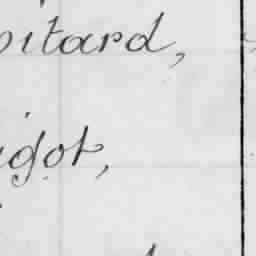 pitard,
igot,